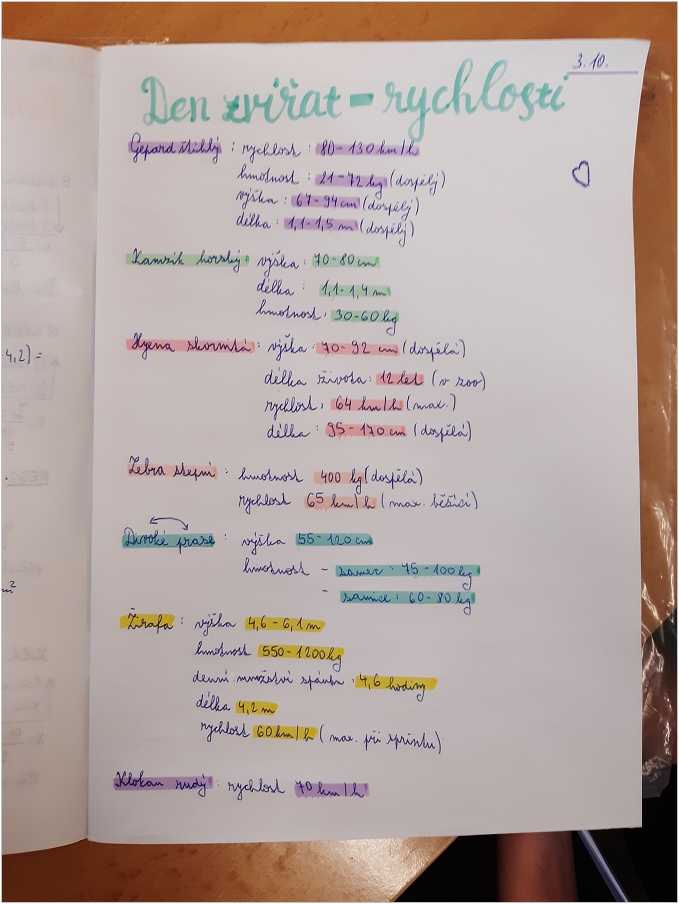 3.10.
Den zvířat - rychlosti
Gepard štíhlý : rychlost : 80-130 km/h
hmotnost : 21-72 kg (dospělý)
výška : 67-94 cm (dospělý)
délka : 1,1-1,5 m (dospělý)
Kamzík horský : výška : 70-80 cm
délka : 1,1-1,4 m
hmotnost : 30-60 kg
Hyena skvrnitá : výška : 70-92 cm (dospělá)
délka života : 12 let (v zoo)
rychlost : 64 km/h (max.)
délka : 95-170 cm (dospělá)
4,2) =
Zebra stepní : hmotnost 400 kg (dospělá)
rychlost 65 km/h (max. běžící)
Divoké prase : výška 55-120 cm
hmotnost - samec : 75-100 kg
- samice : 60-80 kg
Žirafa : výška 4,6-6,1 m
hmotnost 550-1200 kg
denní množství spánku : 4,6 hodiny
délka 4,2 m
rychlost 60 km/h (max. při sprintu)
Klokan rudý : rychlost 70 km/h